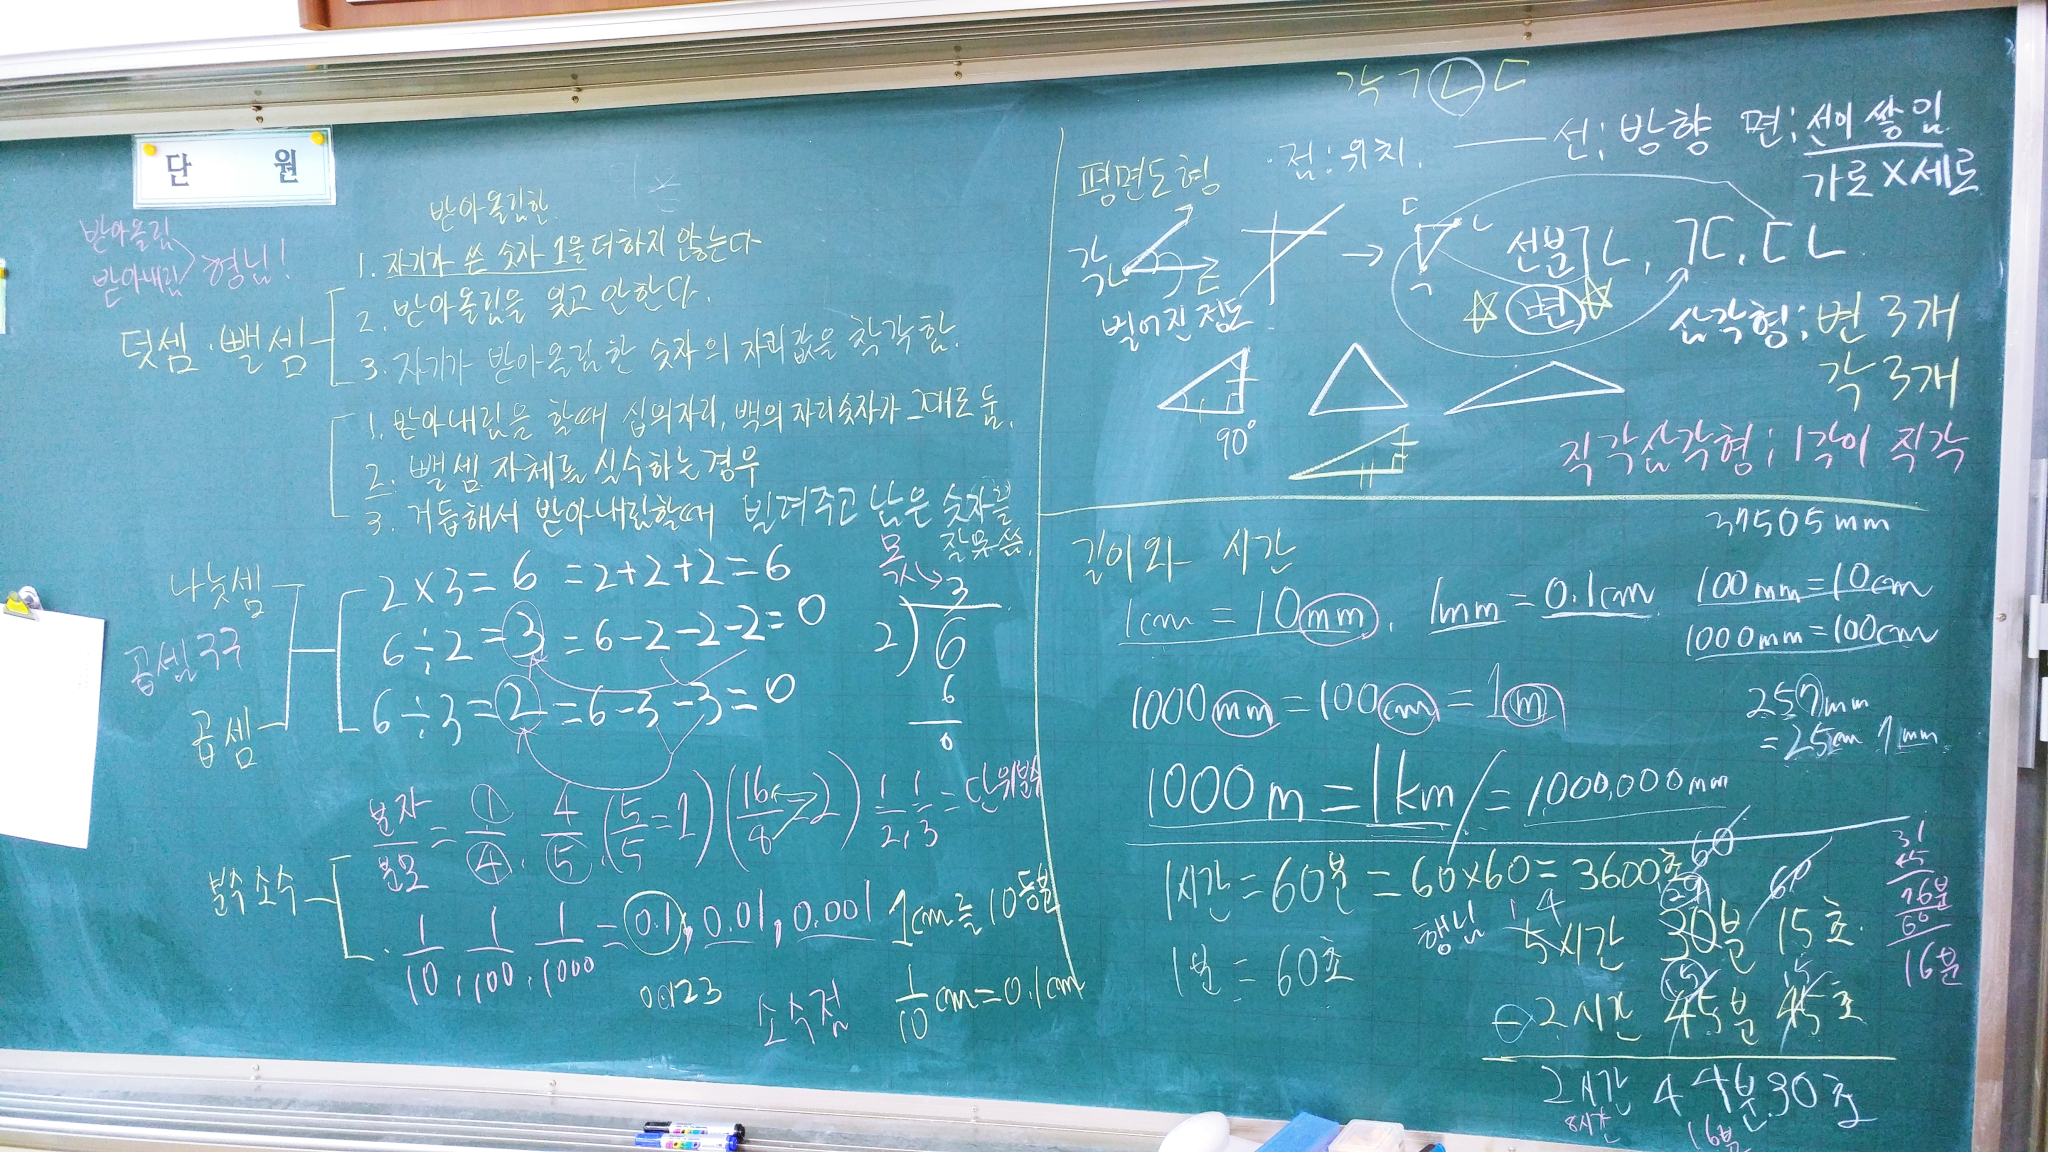 단 원
받아올림
받아내림
형님!
덧셈·뺄셈
받아올림한
1. 자기가 쓴 숫자 1을 더하지 않는다
2. 받아올림을 잊고 안한다.
3. 자기가 받아올림한 숫자의 자릿값을 착각함.
1. 받아내림을 할때 십의자리, 백의 자리숫자가 그대로 둠.
2. 뺄셈 자체로 실수하는 경우
3. 거듭해서 받아내림할때 빌려주고 남은 숫자를
잘못 씀.
나눗셈
곱셈구구
곱셈
2×3=6=2+2+2=6
6÷2=3=6-2-2-2=0
6÷3=2=6-3-3=0
몫
3
2)6
6
0
분수 소수
분자/분모 = 1/4, 4/5, (5/5=1) (16/8=2) 1/2, 1/3 = 단위분수
1/10, 1/100, 1/1000 = 0.1, 0.01, 0.001
1cm를 10등분
0.123
소수점
1/10 cm=0.1cm
각 ㄱㄴㄷ
평면도형
·점:위치.
선:방향
면:선이 쌓임
가로×세로
각
ㄴ
ㄷ
벌어진 정도
ㄷ ㄴ
ㄱ
선분 ㄱㄴ, ㄱㄷ, ㄷㄴ
☆변☆
삼각형:변 3개
각 3개
90°
직각삼각형;1각이 직각
길이와 시간
37505mm
1cm=10mm, 1mm=0.1cm
100mm=10cm
1000mm=100cm
1000mm=100cm=1m
257mm
=25cm 7mm
1000m=1km/=1,000,000mm
1시간=60분=60×60=3600초
1분=60초
60
60
형님
4
29
5시간 30분 15초
15
15
-2시간 45분 45초
2시간 44분 30초
8시간
16분
31
45
76분
60
16분